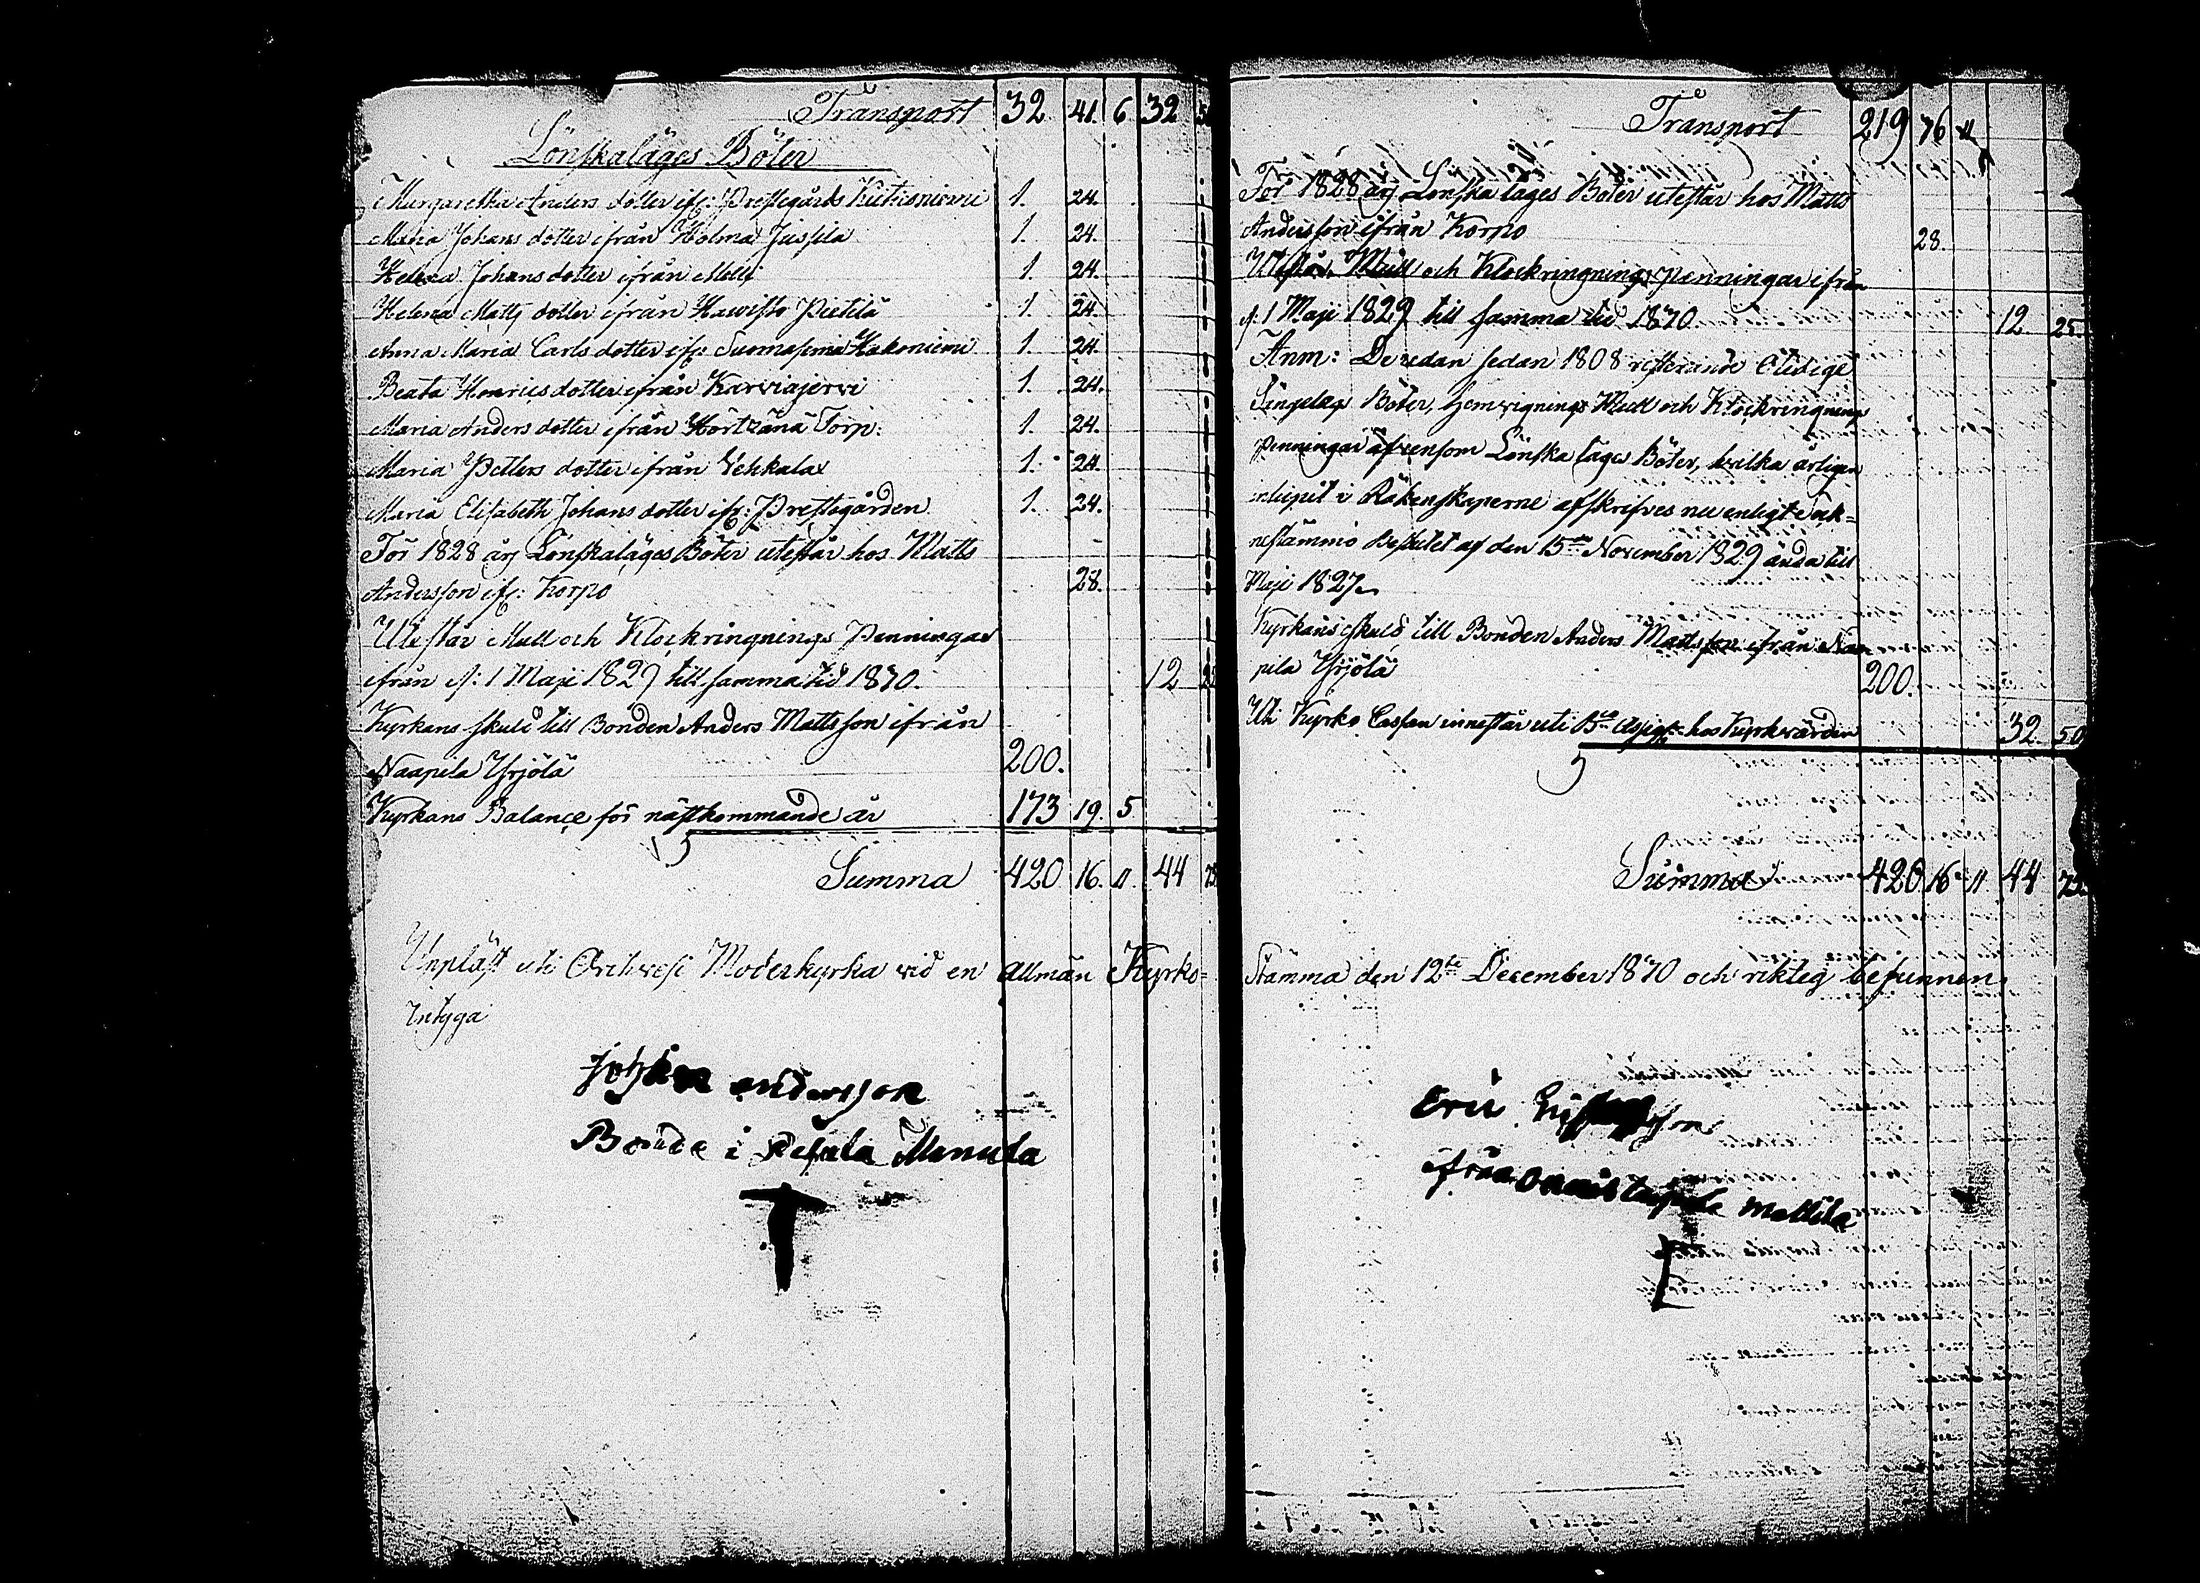 Transport 32 41. 6 32 50
Lönskaläges Böter
Margaretha Anders dotter ifr: Prestegårds Kuhoniemi 1. 24.
Maria Johans dotter ifrån Holma Jussila 1. 24.
Helena Johans dotter ifrån 1. 24.
Helena Matts dotter ifrån Hawisto Pietilä 1. 24.
Anna Maria Carls dotter ifr: Suomasema Hakoniemi 1. 24.
Beata Henrics dotter ifrån Karviajervi 1. 24.
Maria Anders dotter ifrån Torp: 1. 24.
Maria Petters dotter ifrån Vehkalax 1. 24.
Maria Elisabeth Johans dotter ifr: Prestegården 1. 24.
För 1828 årg Lönskaläges Böter utestår hos Matts
Andersson ifr: Korpo 28.
Utestår Mull och Klockringnings Penningar
ifrån d: 1 Maji 1829 till samma tid 1830. 12 25
Kyrkans skuld till Bonden Anders Mattsson ifrån
Naapila Yrjölä 200.
Kyrkans Balance för nästkommande år 173 19. 5
Summa 420 16. 11. 44 75
Transport 219 76 11
För 1828 årg Lönska läges Böter utestår hos Matts
Andersson ifrån Korpo 28.
Utestår Mull och Klockringnings penningar ifrån
d: 1 Maji 1829 till samma tid 1830 12 25.
Anm: De redan sedan 1808 resterande Otidige
Sängelags Böter, hemvignings Mull och Klockringnings
Penningar äfvensom Lönska läges Böter, hvilka årligen
inlupit i Räkenskaperne afskrifves nu enligt Sok=
nestämmo Beslutet af den 15de November 1829 ända till
Maji 1827.
Kyrkans skuld till Bonden Anders Mattsson ifrån Naa
pila Yrjölä 200.
Uti Kyrko Cassan innestår uti Bco Assign: hos Kyrkvärden 32 50
Summa 420 16 11 44 75
Uppläst uti Moderkyrka vid en allmän Kyrko=Stämma den 12te December 1830 och riktig befunnen.
Intyga
Johan andersson
Bonde i
Eric
ifrån Mattila